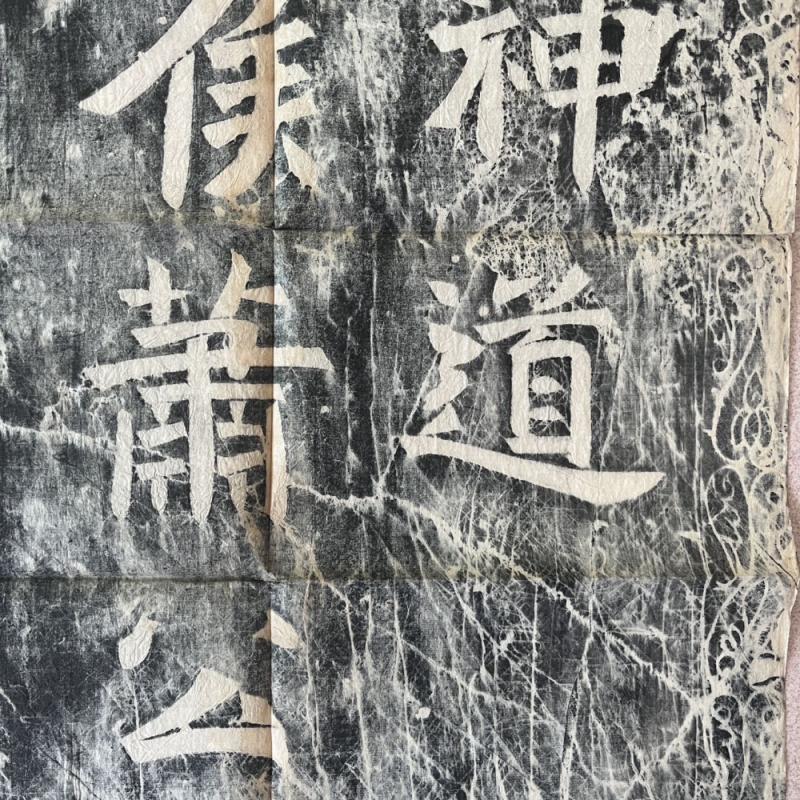 神道
侯蕭公